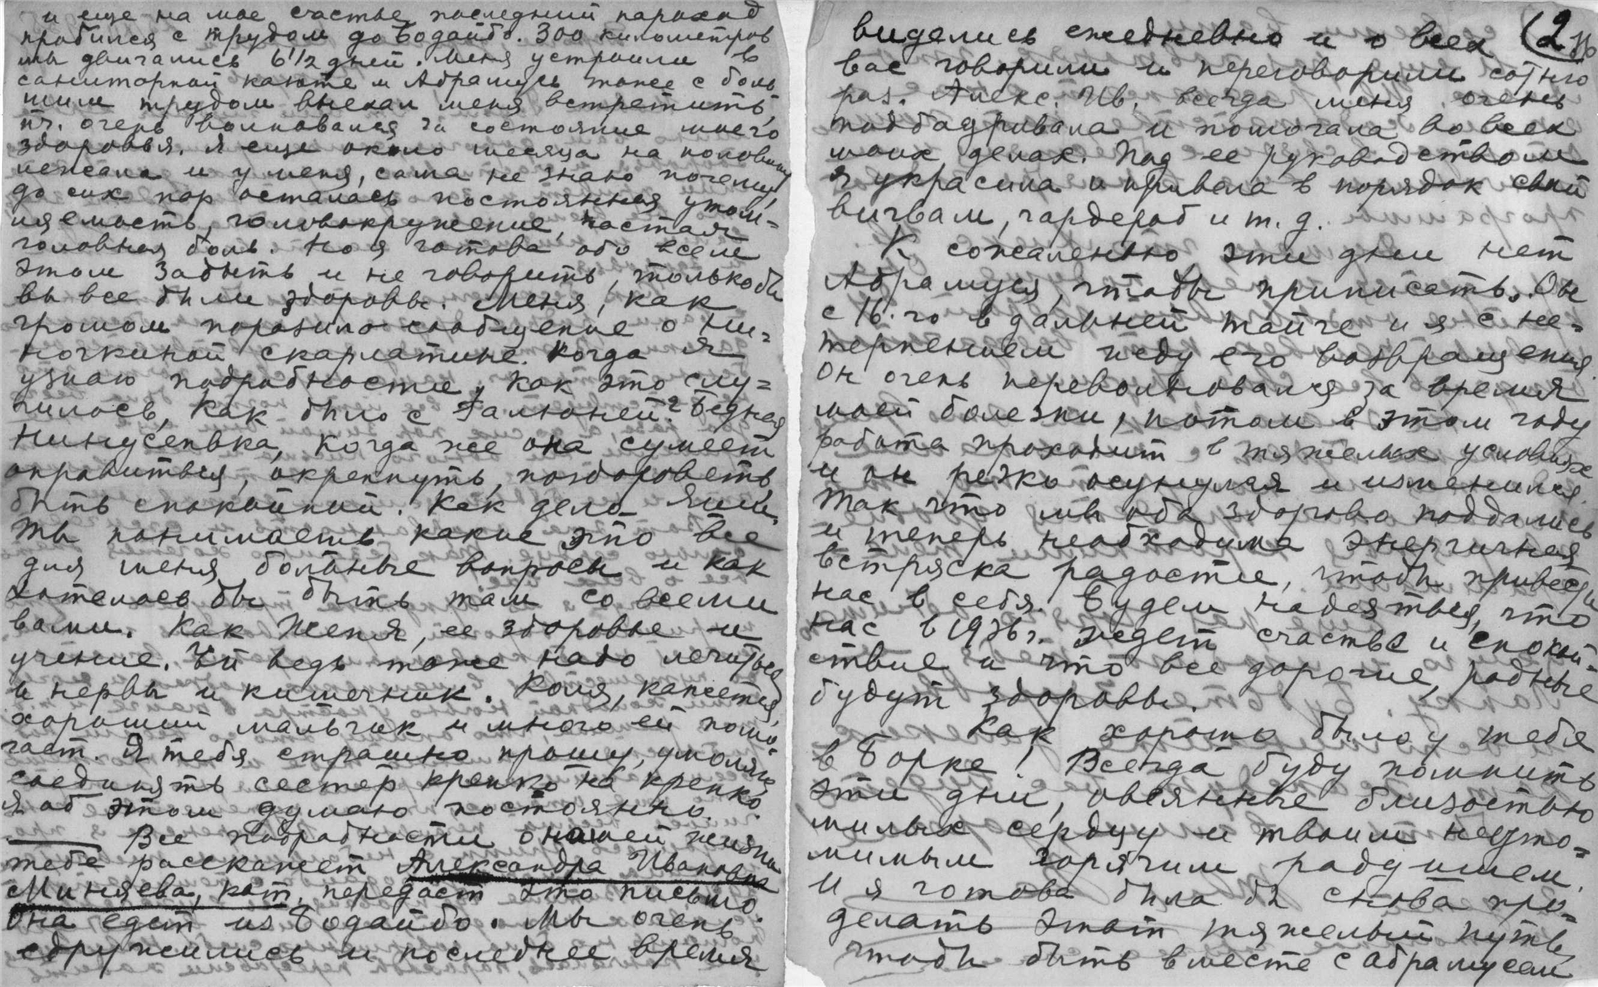 и еще на мое счастье последний пароход
пробился с трудом до Бодайбо. 300 километров
мы двигались 6 1/2 дней. Меня устроили в
санитарной каюте и Абрамусь тоже с боль
шим трудом выехал меня встретить,
пч. очень волновался за состояние моего
здоровья. Я еще около месяца на половину
лежала и у меня, сама не знаю почему,
до сих пор осталась постоянная утом-
ляемость, головокружение, частая
головная боль. Но я готова обо всем
этом забыть и не говорить, только бы
вы все были здоровы. Меня, как
громом поразило сообщение о Ни-
ночкиной скарлатине. Когда я
узнаю подробности, как это слу=
чилось, как было с Галюней? Бедная
Нинусенька, когда же она сумеет
оправиться, окрепнуть, поздороветь,
быть спокойной. Как дела Яши.
Ты понимаешь какие это все
для меня больные вопросы и как
хотелось бы быть там со всеми
вами. Как Женя, ее здоровье и
учение. Ей ведь тоже надо лечиться
и нервы и кишечник. Коля, кажется,
хороший мальчик и много ей помо-
гает. Я тебя страшно прошу, умоляю
соединять сестер крепко на крепко.
Я об этом думаю постоянно.
Все подробности о нашей жизни
тебе расскажет Александра Ивановна
Миняева, кот. передаст это письмо.
Она едет из Бодайбо. Мы очень
сдружились и последнее время
(2
виделись ежедневно и о всех
вас говорили и переговорили сотню
раз. Алекс. Ив. всегда меня очень
подбадривала и помогала во всех
моих делах. Под ее руководством
я украсила и привела в порядок свой
вигвам, гардероб и т. д.
К сожалению эти дни нет
Абрамуся, чтобы приписать. Он
с 16-го в дальней тайге и я с не=
терпением жду его возвращения.
Он очень переволновался за время
моей болезни, потом в этом году
работа проходит в тяжелых условиях
и он резко осунулся и изменился.
Так что мы оба здорово поддались
и теперь необходима энергичная
встряска радости, чтобы привести
нас в себя. Будем надеяться, что
нас в 1936 г. ждет счастье и спокой-
ствие и что все дорогие, родные
будут здоровы.
Как хорошо было у тебя
в Борке! Всегда буду помнить
эти дни, овеянные близостью
милых сердцу и твоим неуто=
мимым горячим радушием.
И я готова была бы снова про-
делать этот тяжелый путь,
чтобы быть вместе с Абрамусем